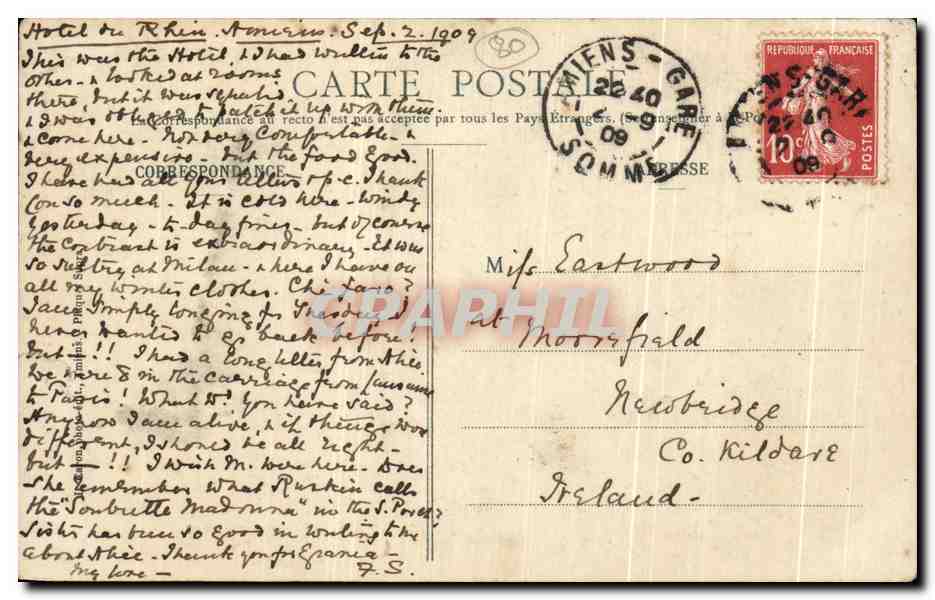 Hotel du Rhin Amiens. Sep. 2. 1909
This was the Hotel, & I had written to the
other - & looked at rooms
there, but it was
& I was obliged to patch it up with them
& come here - Not very comfortable - &
very expensive - but the food good.
I have had all your letters & p.c. Thank
you so much. It is cold here - windy
yesterday - to-day finer - but of course
the contrast is extraordinary - It was
so sultry at Milan - & here I have on
all my winter clothes.
I am simply longing for
never wanted to go back before!
but - !! I had a long letter from
We were 8 in the carriage from Lausanne
to Paris! What wd. you have said?
Anyhow I am alive, & if things were
different, I should be all right -
but - !! I wish M. were here - Does
she remember what Ruskin calls
the "Soubrette Madonna" in the S. Porch?
Sister has been so good in writing to me
about - Thank you for
My love - F.S.
80
CARTE POSTALE
La Correspondance au recto n'est pas acceptée par tous les Pays Étrangers. (Se renseigner à la Poste)
CORRESPONDANCE
ADRESSE
AMIENS - GARE
22 40
2 - 9
09
SOMME
RÉPUBLIQUE FRANÇAISE
10 c
POSTES
AMIENS - GARE
22 40
09
Miss Eastwood
at Moorefield
Newbridge
Co. Kildare
Ireland -
CPARHIL
Caron, photo-édit., Amiens.